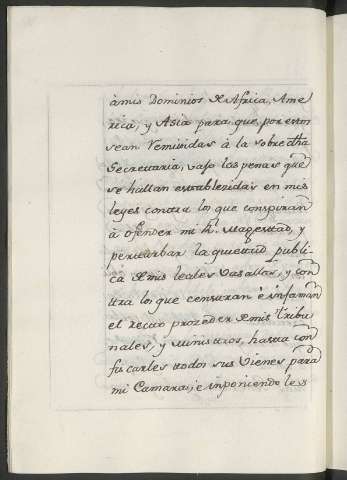 àmis Dominios de Africa, Ame
rica, y Asia para que, por estos
sean remitidas à la sobredha
Secretaria, vajo las penas que
se hallan establezidas en mis
leyes contra los que conspiran
à ofender mi Rl. Magestad, y
perturbar la quietud publi
ca de mis leales Vasallos, y con
tra los que censuran è infaman
el recto prozeder de mis Tribu
nales, y Ministros, hasta con
fiscarles todos sus Vienes para
mi Camara, è inponiendoles